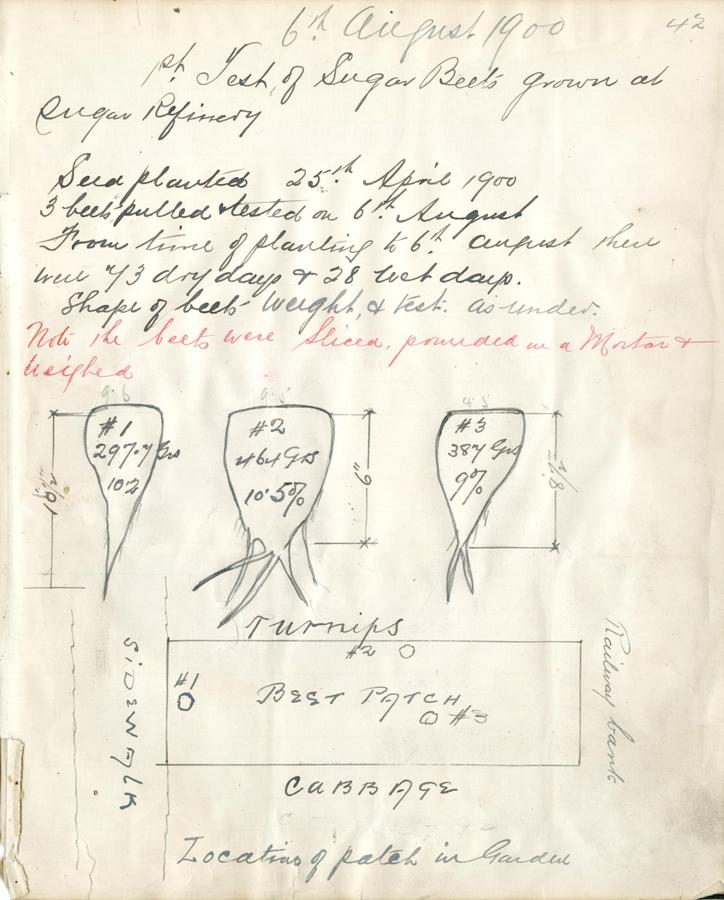 6th August 1900
42
1st Test, of Sugar Beets grown at
Sugar Refinery
Seed planted 25th April 1900
3 beets pulled & tested on 6th August
From time of planting to 6th august there
were 73 dry days & 28 wet days.
Shape of beets weight, & test. as under.
Note the beets were Sliced, pounded in a Mortar &
Weighed
9.6
9.5
#1
297.7 Grs
10.2
10½"
#2
464 Grs
10.5%
9"
#3
387 Grs
9%
8½"
Turnips
#2
#1
BEET PATCH
#3
SIDEWALK
Railway bank
CABBAGE
Location of patch in Garden